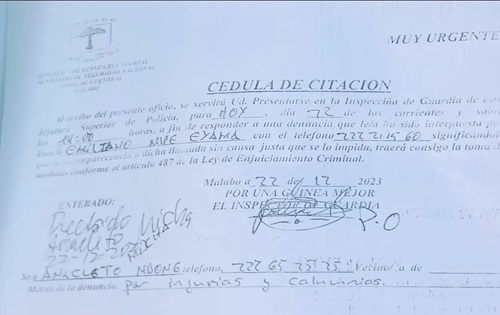 MUY URGENTE
REPUBLICA DE GUINEA ECUATORIAL
MINISTERIO DE SEGURIDAD NACIONAL
COMISARIA CENTRAL
MALABO
CEDULA DE CITACION
Al recibo del presente oficio, se servirá Ud. Presentarse en la Inspección de Guardia de esta
Jefatura Superior de Policía, para HOY, día 22 de los corrientes y sobre
las 14:00 horas, a fin de responder a una denuncia que le/a ha sido interpuesta por
EMILIANO MPE EYAMA con el telefono 222 215 60 significándo
comparecencia a dicha llamada sin causa justa que se lo impida, traerá consigo la toma de
medidas conforme al artículo 487 de la Ley de Enjuiciamiento Criminal.
Malabo a 22 de 12 2023
POR UNA GUINEA MEJOR
ENTERADO:
EL INSPECTOR DE GUARDIA
P.O
22-12-2023
ANACLETO NDONG telefono, 222 65 25 25 Vecino/a de
Motivo de la denuncia, por injurias y calumnias.